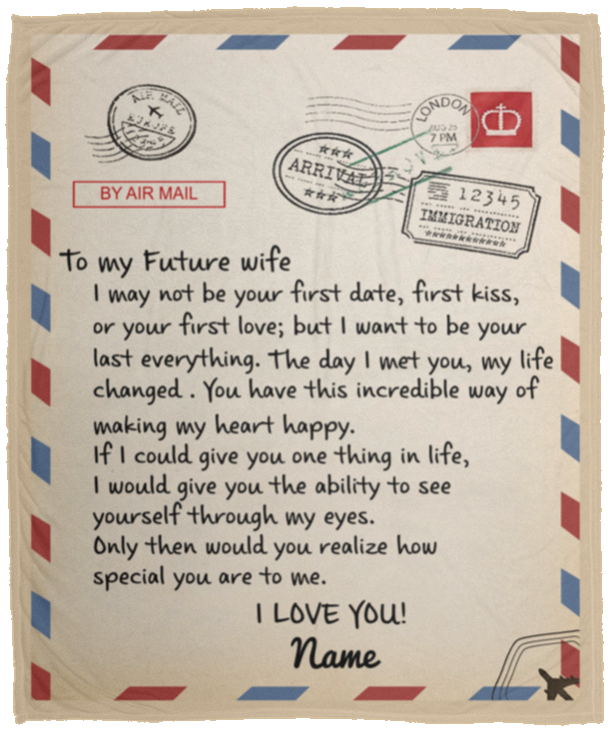 AIR MAIL
EUROPE
LONDON
AUG 25
7 PM
ARRIVAL
12345
IMMIGRATION
BY AIR MAIL
To my Future wife
I may not be your first date, first kiss,
or your first love; but I want to be your
last everything. The day I met you, my life
changed . You have this incredible way of
making my heart happy.
If I could give you one thing in life,
I would give you the ability to see
yourself through my eyes.
Only then would you realize how
special you are to me.
I LOVE YOU!
Name